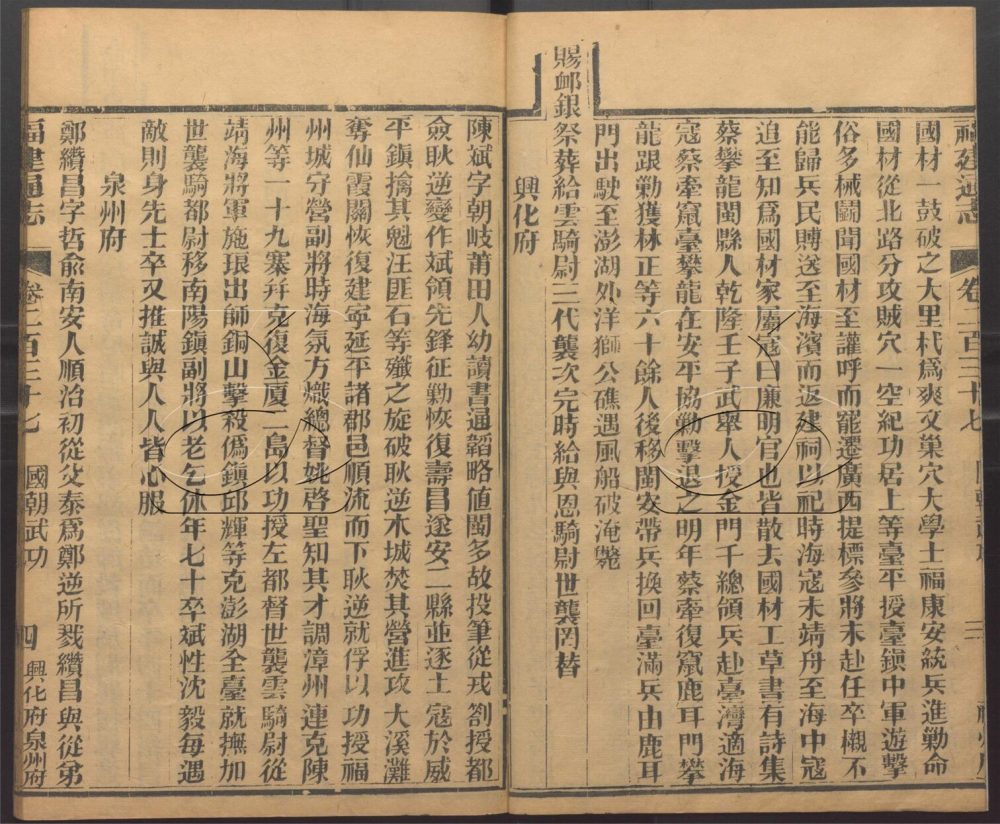 福建通志 卷二百三十七
國材一鼓破之大里杙爲爽文巢穴大學士福康安統兵進勦命
國材從北路分攻賊穴一空紀功居上等臺平授臺鎭中軍遊擊
俗多械鬭聞國材至讙呼而寵遷廣西提標參將未赴任卒櫬不
能歸兵民賻送至海濱而返建祠以祀時海寇未靖舟至海中寇
迫至知爲國材家屬寇曰廉明官也皆散去國材工草書有詩集
蔡攀龍閩縣人乾隆壬子武舉人授金門千總領兵赴臺灣適海
寇蔡牽竄臺攀龍在安平協勦擊退之明年蔡牽復竄鹿耳門攀
龍跟勦獲林正等六十餘人後移閩安帶兵換回臺滿兵由鹿耳
門出駛至澎湖外洋獅公礁遇風船破淹斃
賜䘏銀祭葬給雲騎尉三代襲次完時給與恩騎尉世襲罔替
興化府
陳斌字朝岐莆田人幼讀書通韜略値閩多故投筆從戎劄授都
僉耿逆變作斌領先鋒征勦恢復壽昌遂安二縣並逐土寇於威
平鎭擒其魁汪匪石等殲之旋破耿逆木城焚其營進攻大溪灘
奪仙霞關恢復建寧延平諸郡邑順流而下耿逆就俘以功授福
州城守營副將時海氛方熾總督姚啓聖知其才調漳州連克陳
州等一十九寨幷克復金厦二島以功授左都督世襲雲騎尉從
靖海將軍施琅出師銅山擊殺僞鎭邱輝等克澎湖全臺就撫加
世襲騎都尉移南陽鎭副將以老乞休年七十卒斌性沈毅每遇
敵則身先士卒又推誠與人人皆心服
泉州府
鄭纘昌字哲俞南安人順治初從父泰爲鄭逆所戮纘昌與從弟
福建通志 卷二百三十七 國朝武功 四 興化府泉州府